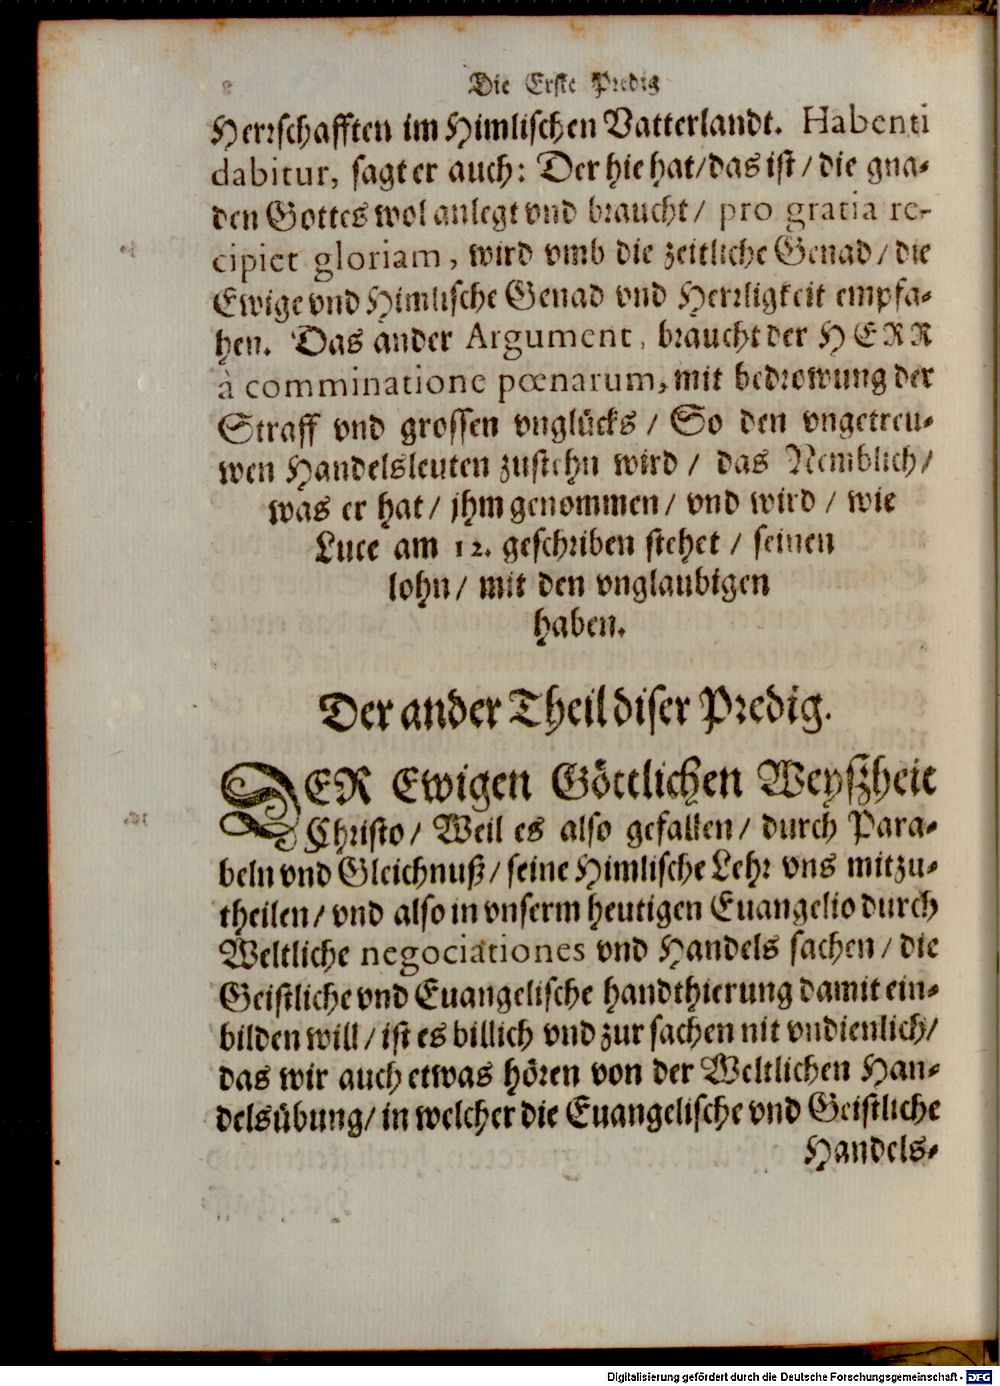 8 Die Erste Predig
Herrschafften im Himlischen Vatterlandt. Habenti
dabitur, sagt er auch: Der hie hat/das ist/die gna-
den Gottes wol anlegt vnd braucht/ pro gratia re-
cipiet gloriam, wird vmb die zeitliche Genad/die
Ewige vnd Himlische Genad vnd Herrligkeit empfa-
hen. Das ander Argument, braucht der HERR
à comminatione pœnarum, mit bedrowung der
Straff vnd grossen vnglücks / So den vngetreu-
wen Handelsleuten zustehn wird / das Nemblich/
was er hat/ jhm genommen/ vnd wird / wie
Luce am 12. geschriben stehet / seinen
lohn/ mit den vnglaubigen
haben.
Der ander Theil diser Predig.
DER Ewigen Göttlichen Weyßheit
Christo/ Weil es also gefallen/ durch Para-
beln vnd Gleichnuß/ seine Himlische Lehr vns mitzu-
theilen/ vnd also in vnserm heutigen Euangelio durch
Weltliche negociationes vnd Handels sachen/ die
Geistliche vnd Euangelische handthierung damit ein-
bilden will/ ist es billich vnd zur sachen nit vndienlich/
das wir auch etwas hören von der Weltlichen Han-
delsübung/ in welcher die Euangelische vnd Geistliche
Handels-
Digitalisierung gefördert durch die Deutsche Forschungsgemeinschaft - DFG